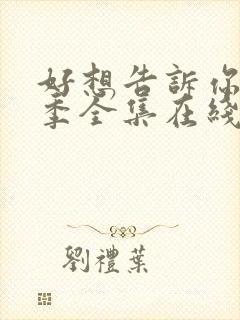 好想告訴你
季全集在綫
劉禮葉